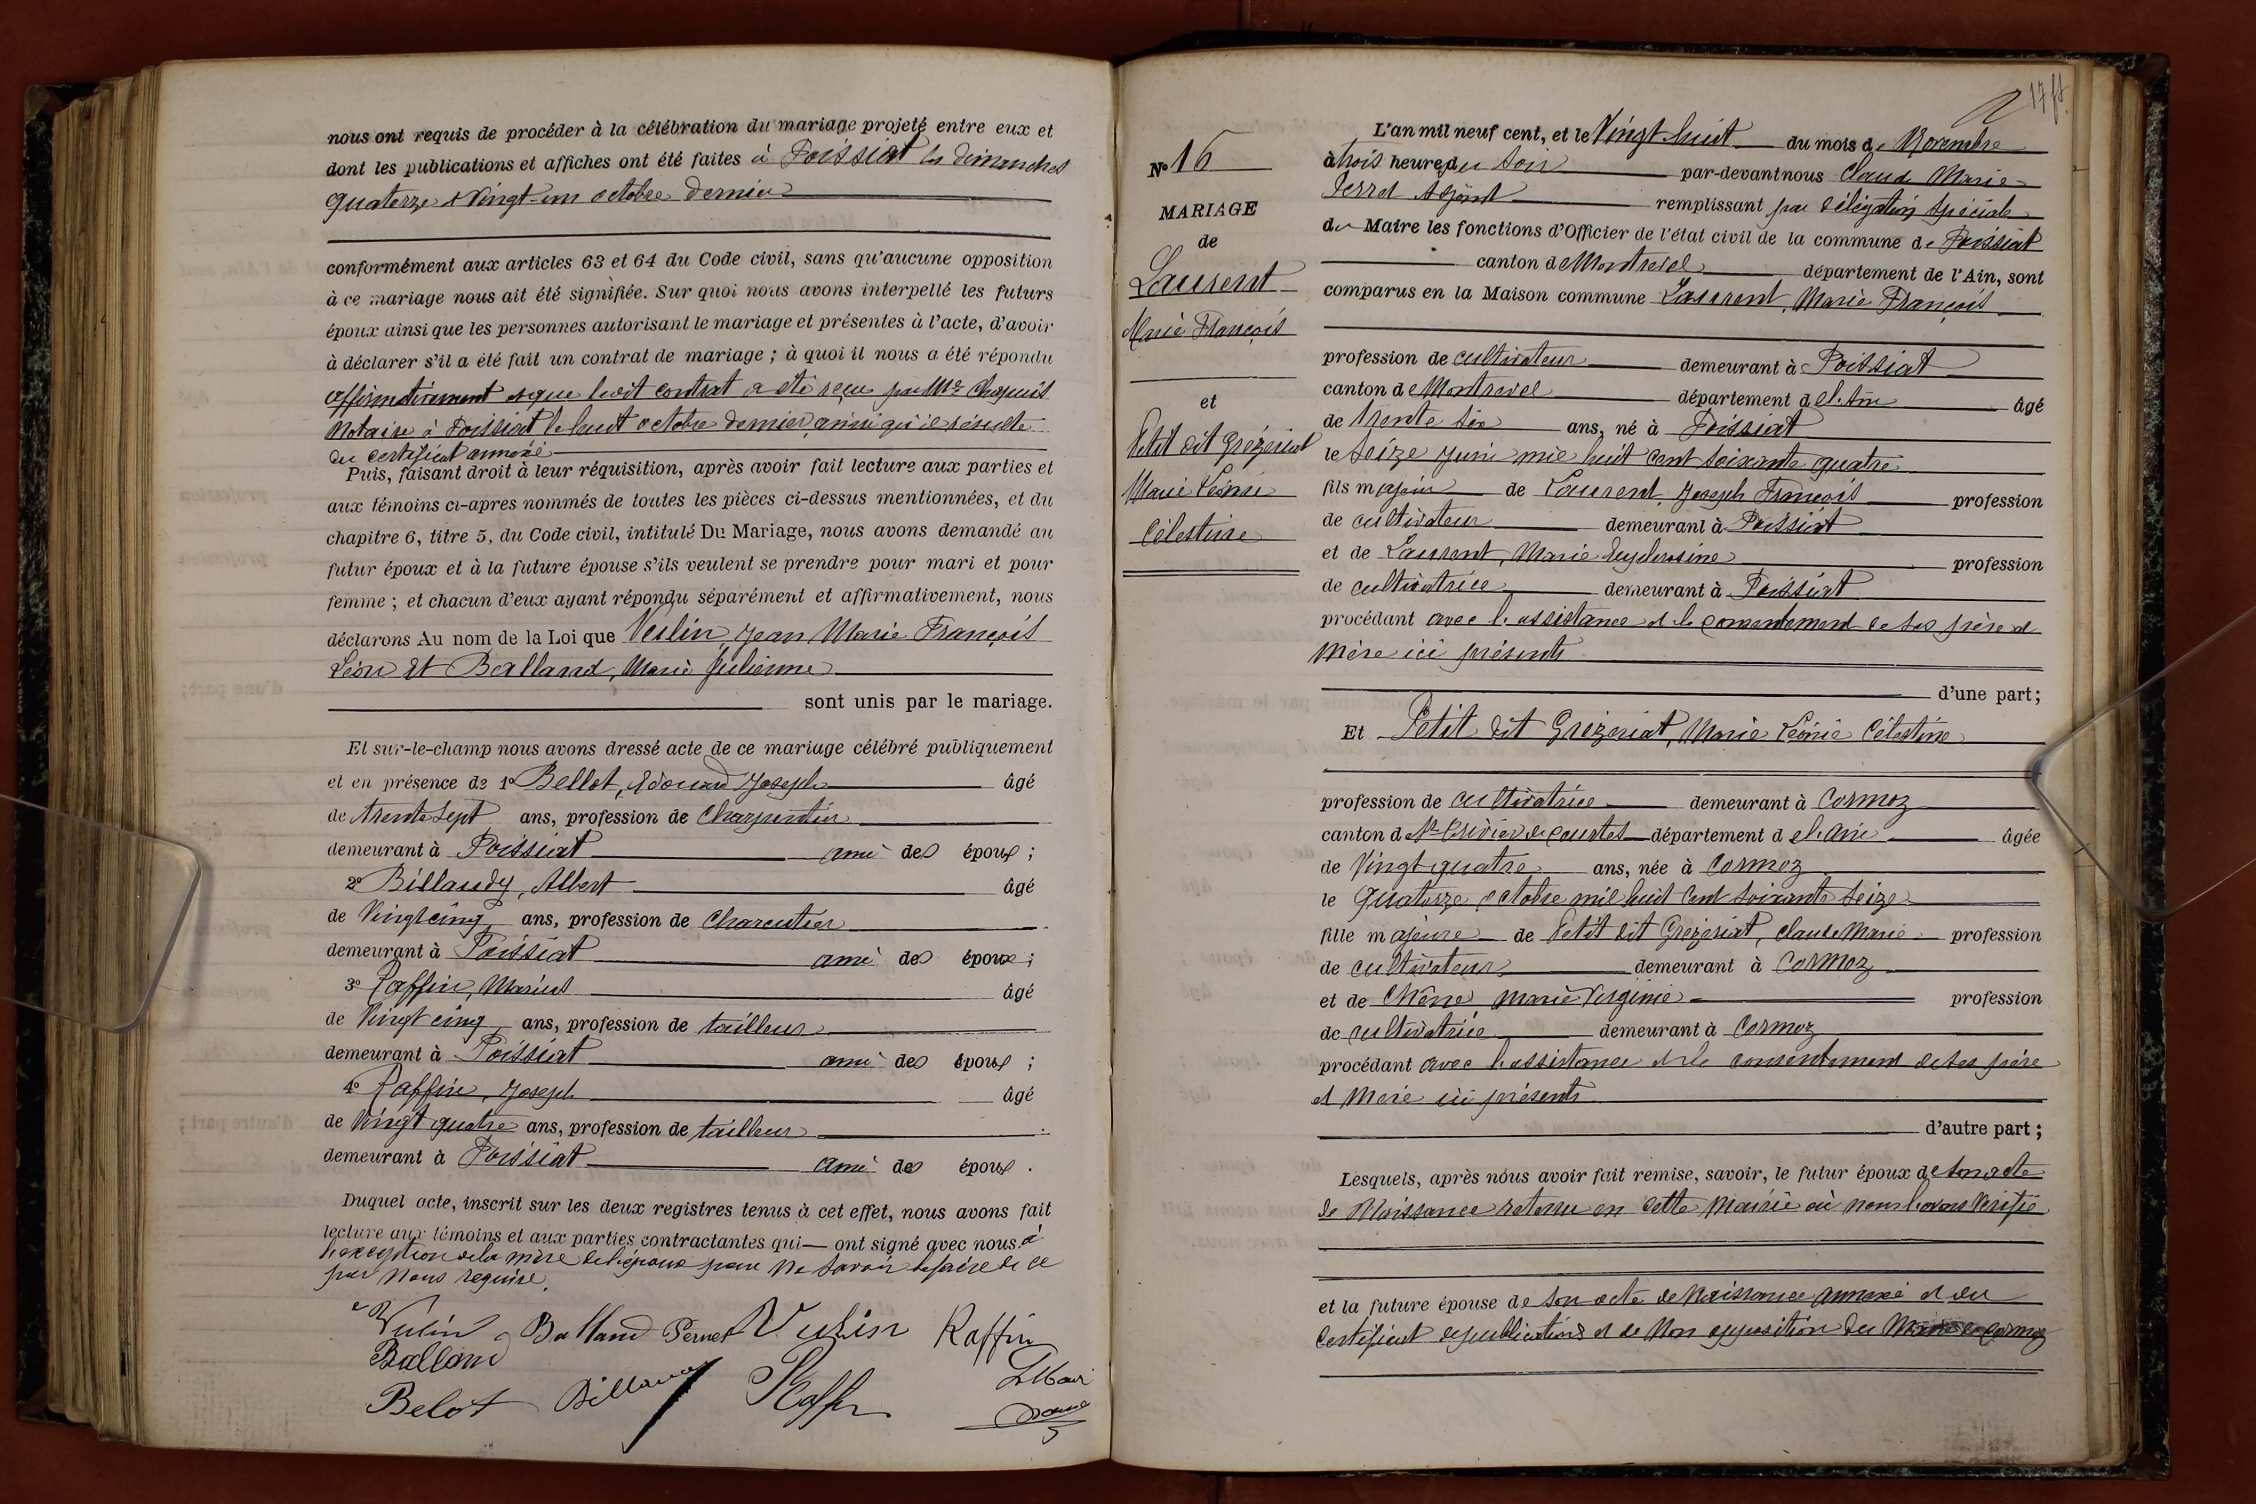 nous ont requis de procéder à la célébration du mariage projeté entre eux et
dont les publications et affiches ont été faites à Foissiat les dimanches
quatorze & Vingt-un octobre dernier
conformément aux articles 63 et 64 du Code civil, sans qu'aucune opposition
à ce mariage nous ait été signifiée. Sur quoi nous avons interpellé les futurs
époux ainsi que les personnes autorisant le mariage et présentes à l'acte, d'avoir
à déclarer s'il a été fait un contrat de mariage ; à quoi il nous a été répondu
affirmativement et que ledit contrat a été reçu par Me Chapuis
Notaire à Foissiat le huit octobre dernier, ainsi qu'il résulte
du certificat annexé
Puis, faisant droit à leur réquisition, après avoir fait lecture aux parties et
aux témoins ci-apres nommés de toutes les pièces ci-dessus mentionnées, et du
chapitre 6, titre 5, du Code civil, intitulé Du Mariage, nous avons demandé au
futur époux et à la future épouse s'ils veulent se prendre pour mari et pour
femme ; et chacun d'eux ayant répondu séparément et affirmativement, nous
déclarons Au nom de la Loi que Vulin, Jean Marie François
Léon Et Balland, Marie Julienne
sont unis par le mariage.
Et sur-le-champ nous avons dressé acte de ce mariage célébré publiquement
et en présence de 1º Bellot, Edouard Joseph âgé
de trente sept ans, profession de Charpentier
demeurant à Foissiat ami des époux ;
2º Billaudy, Albert âgé
de Vingt cinq ans, profession de Charcutier
demeurant à Foissiat ami des époux ;
3º Raffin, Marius âgé
de Vingt cinq ans, profession de tailleur
demeurant à Foissiat ami des époux ;
4º Raffin, Joseph âgé
de Vingt quatre ans, profession de tailleur
demeurant à Foissiat ami des époux .
Duquel acte, inscrit sur les deux registres tenus à cet effet, nous avons fait
lecture aux témoins et aux parties contractantes qui ont signé avec nous à
l'exception de la mère de l'époux pour ne savoir le faire de ce
par Nous requise.
Vulin Balland Pernet Vulin Raffin
Balland
Belot Billaudy Raffin
17
Nº 16
MARIAGE
de
Laurent
Marie François
et
Petit dit Grézériat
Marie Léonie
Célestine
L'an mil neuf cent, et le Vingt huit du mois de Novembre
à trois heures du soir par-devant nous Claude Marie
Ferret Adjoint remplissant par délégation spéciale
du Maire les fonctions d'Officier de l'état civil de la commune de Foissiat
canton de Montrevel département de l'Ain, sont
comparus en la Maison commune Laurent, Marie François
profession de cultivateur demeurant à Foissiat
canton de Montrevel département de l'Ain âgé
de trente six ans, né à Foissiat
le seize juin mil huit cent soixante quatre
fils majeur de Laurent, Joseph François profession
de cultivateur demeurant à Foissiat
et de Laurent, Marie Euphrosine profession
de cultivatrice demeurant à Foissiat
procédant avec l'assistance et le consentement de ses père et
Mère ici présents
d'une part;
Et Petit dit Grézériat, Marie Léonie Célestine
profession de cultivatrice demeurant à Cormoz
canton de St Trivier de Courtes département de l'Ain âgée
de Vingt quatre ans, née à Cormoz
le quatorze octobre mil huit cent soixante seize
fille majeure de Petit dit Grézériat, Claude Marie profession
de cultivateur demeurant à Cormoz
et de Chêne Marie Virginie profession
de cultivatrice demeurant à Cormoz
procédant avec l'assistance et le consentement de ses père
et Mère ici présents
d'autre part ;
Lesquels, après nous avoir fait remise, savoir, le futur époux de son acte
de Naissance retenu en cette Mairie où nous l'avons vérifié
et la future épouse de son acte de Naissance annexé et du
certificat de publications et de Non opposition du Maire de Cormoz